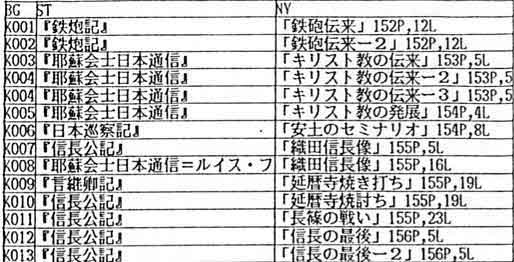 BG ST NY
K001 『鉄炮記』 「鉄砲伝来」152P,12L
K002 『鉄炮記』 「鉄砲伝来ー2」152P,12L
K003 『耶蘇会士日本通信』 「キリスト教の伝来」153P,5L
K004 『耶蘇会士日本通信』 「キリスト教の伝来ー2」153P,5
K004 『耶蘇会士日本通信』 「キリスト教の伝来ー3」153P,5
K005 『耶蘇会士日本通信』 「キリスト教の発展」154P,4L
K006 『日本巡察記』 「安土のセミナリオ」154P,8L
K007 『信長公記』 「織田信長像」155P,5L
K008 『耶蘇会士日本通信=ルイス・フ 「織田信長像」155P,16L
K009 『言継卿記』 「延暦寺焼き打ち」155P,19L
K010 『信長公記』 「延暦寺焼討ち」155P,19L
K011 『信長公記』 「長篠の戦い」155P,23L
K012 『信長公記』 「信長の最後」156P,5L
K013 『信長公記』 「信長の最後ー2」156P,5L